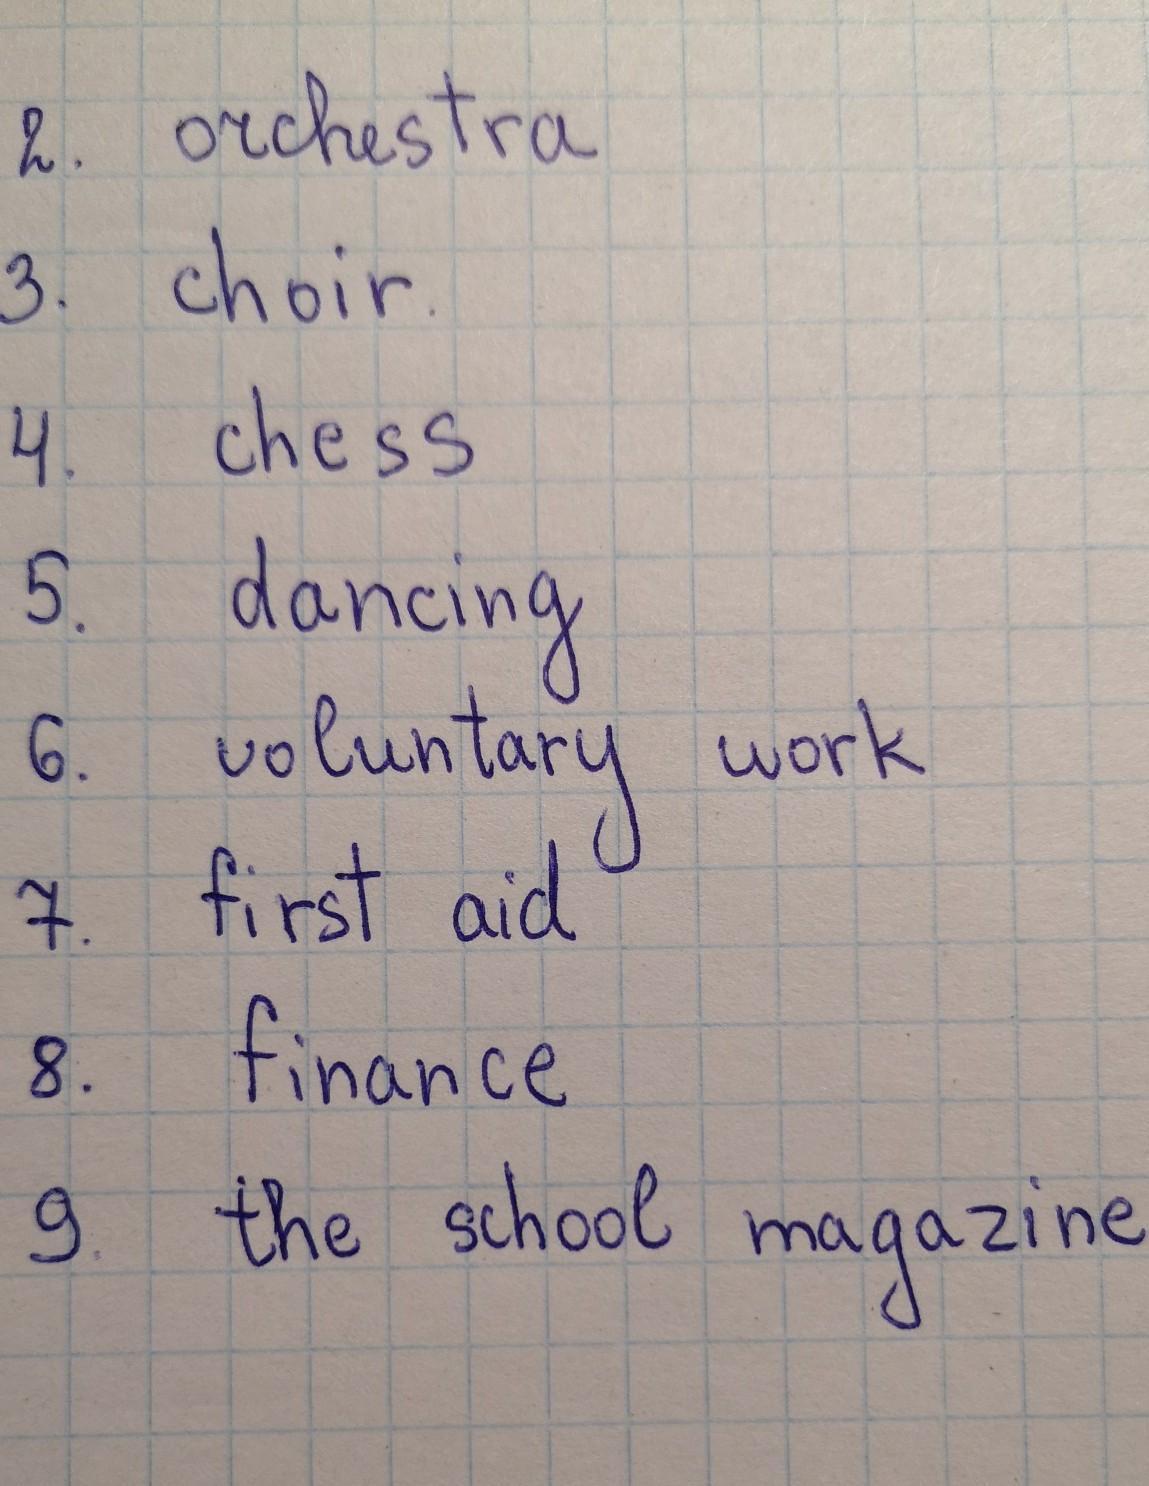 2. orchestra
3. choir.
4. chess
5. dancing
6. voluntary work
7. first aid
8. finance
9. the school magazine